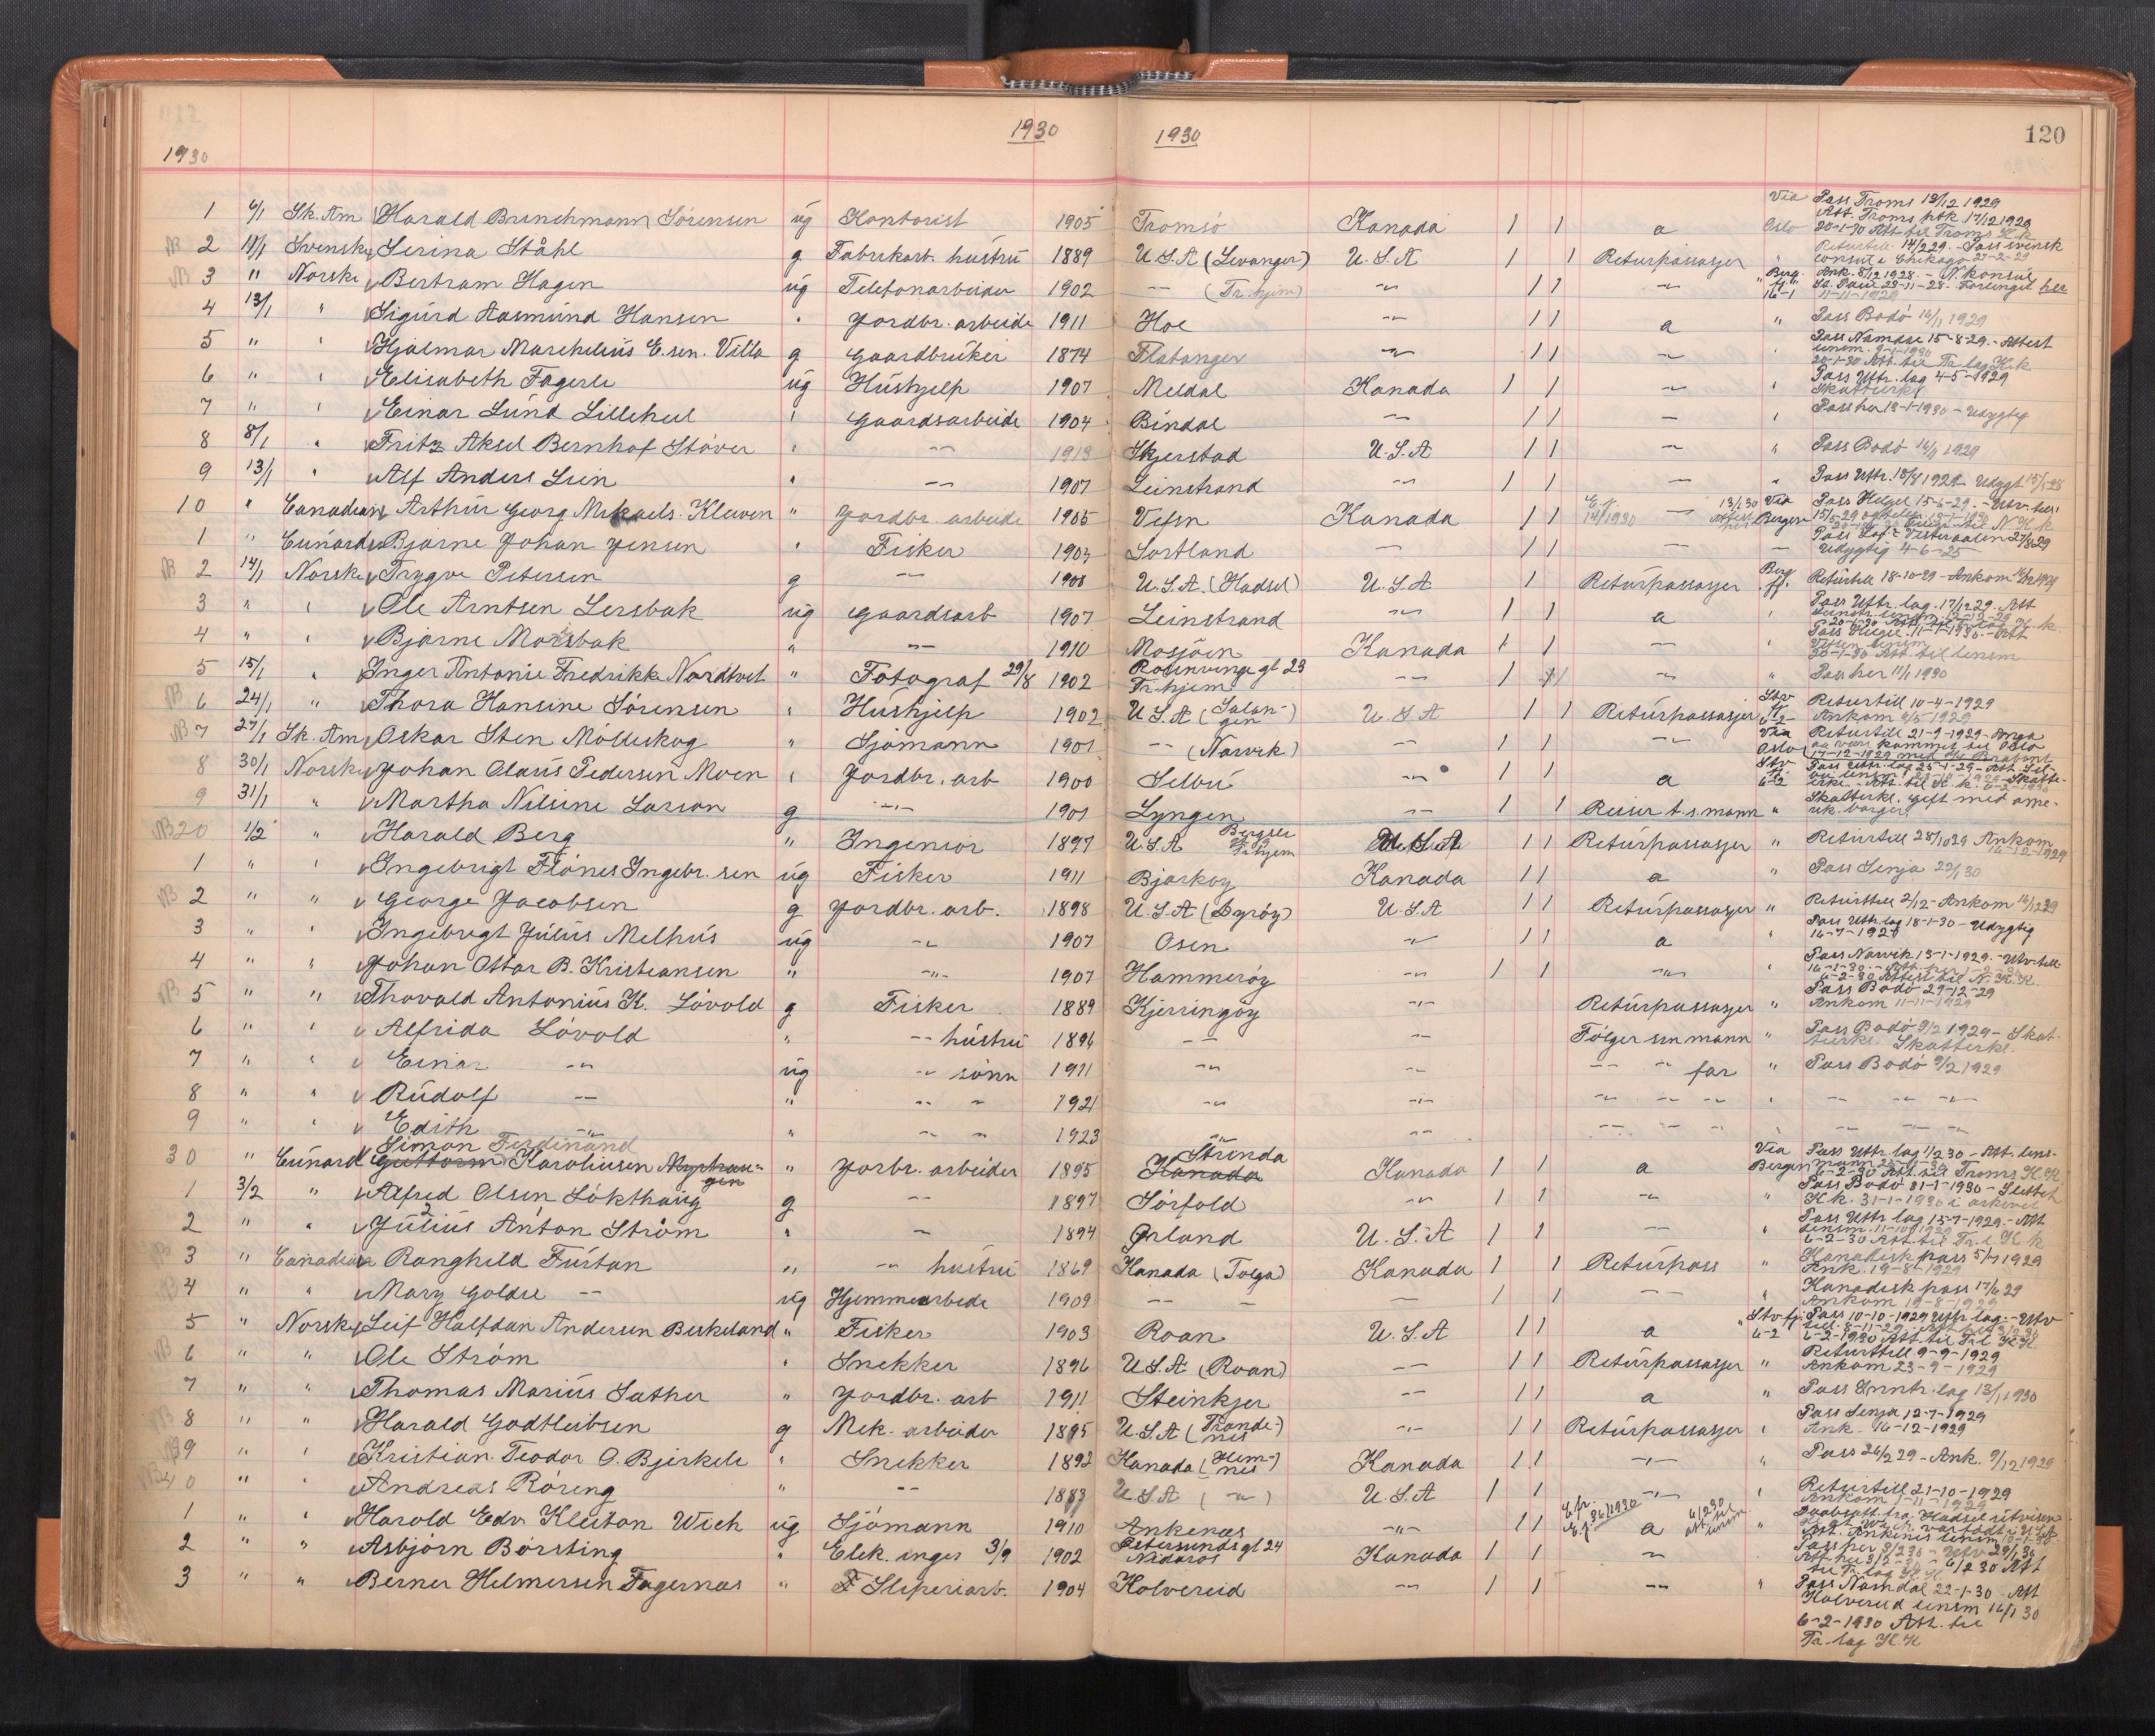 1930
1930
1930
120
1 6/1 Sk. Am Harald Brinchmann Sørensen ug Kontorist 1905 Tromsø Kanada 1 1 a Via Oslo Pass Troms 13/12 1929
Att. Troms pok 17/12 1929
20-1-30 Att til Troms K.k
NB 2 11/1 Svensk Serina Ståhl g Fabrikarb. hustru 1889 U.S.A (Levanger) U.S.A 1 1 Returpassasjer " Returtill. 14/2 29. - Pass svensk
consul i Chikago 27-2-29
NB 3 " Norske Bertram Hagen ug Telefonarbeider 1902 -"- (Tr.hjem) -"- 1 1 -"- Berg. fj. 16-1 Ank. 8/12 1928. - N. konsul
St. Paul 23-11-28. Forlenget her
11-11-1929
4 13/1 " Sigurd Aasmund Hansen " Jordbr. arbeide 1911 Hol -"- 1 1 a " Pass Bodø 16/11 1929
5 " " Hjalmar Markelius E.sen. Villa g Gaardbruker 1874 Flatanger -"- 1 1 -"- " Pass Namdal 15-8-29. - Attest
lensm. 9-1-1930
20-1-30 Att. til Tr. lag K.k
6 " " Elisabeth Fagerli ug Hushjelp 1907 Meldal Kanada 1 1 -"- " Pass Uttr. lag 4-5-1929
Skatterkl
7 " " Einar Lund Lillehul " Gaardsarbeide 1904 Bindal -"- 1 1 -"- " Pass her 13-1-1930 - Udygtig
8 8/1 " Fritz Aksel Bernhof Støver " -"- 1913 Skjerstad U.S.A 1 1 -"- " Pass Bodø 14/11 1929
9 13/1 " Alf Anders Lein " -"- 1907 Leinstrand -"- 1 1 -"- " Pass Uttr. 18/4 1929 Udygt 15/5-28
10 " Canadian Arthur Georg Mikaels. Kleven " Jordbr. arbeide 1905 Vefsn Kanada 1 1 E.f. 14/1930 -"- 13/1 30 Via Bergen Pass Helgel 15-6-29. - Utv. till
1 " Cunard Bjarne Johan Jensen " Fisker 1903 Sortland -"- 1 1 -"- -"- Pass Lof. Vesteraalen 27/8 29
Udygtig 4-6-25
NB 2 14/1 Norske Trygve Petersen g -"- 1908 U.S.A (Hadsel) U.S.A 1 Returpassasjer Berg. fj. Returtill 18-10-29 - Ankom
3 " " Ole Arntsen Lersbak ug Gaardsarb 1907 Leinstrand -"- 1 1 a " Pass Uttr. lag. 17/12 29. Att
4 " " Bjarne Marsbak " -"- 1910 Mosjøen Kanada 1 1 -"- " Pass Helgel. 11-1-1930. - Att
Vefsn lensm
20-1-30 Att. til lensm
5 15/1 " Inger Antonie Fredrikke Nordtvet " Fotograf 29/8 1902 Rosenvinge gt 23
Tr.hjem -"- 1 1 -"- " Pass her 11/1 1930
NB 6 24/1 " Thora Hansine Sørensen " Hushjelp 1902 U.S.A (Salangen) U.S.A 1 1 Returpassasjer Stv fj. 6-2 Returtill 10-4-1929
Ankom 9/5 1929
NB 7 27/1 Sk. Am Oskar Sten Möllskog " Sjømann 1901 -"- (Narvik) -"- 1 1 -"- Via Oslo Returtill 21-9-1929 - Angir
aa være kommet til Oslo
17-12-1929 med
8 30/1 Norske Johan Olaus Pedersen Moen " Jordbr. arb 1900 Selbu -"- 1 1 a Stv fj. 6-2 Pass Uttr. lag 25-1-29 - Att. Sel-
9 31/1 " Martha Nilsine Larson g -"- 1901 Lyngen -"- 1 1 Reiser t. s. mann " Skatterkl. gift med ame-
rik. borger.
NB 20 1/2 " Harald Berg " Ingeniør 1897 U.S.A Tr.hjem U.S.A 1 1 Returpassasjer " Returtill 28/10 29 Ankom
14-12-1929
1 " " Ingebrigt Flønes Ingebr.sen ug Fisker 1911 Bjarkøy Kanada 1 1 a " Pass Senja 23/1 30
NB 2 " " George Jacobsen g Jordbr. arb. 1898 U.S.A (Dyrøy) U.S.A 1 1 Returpassasjer " Returtill 2/12 - Ankom
3 " " Ingebrigt Julius Melhus ug -"- 1907 Osen -"- 1 1 a " Pass Uttr. lag 18-1-30 - Udygtig
4 " " Johan Ottar B. Kristiansen " -"- 1907 Hammerøy -"- 1 1 -"- " Pass Narvik 13-1-1929. - Utv. till
NB 5 " " Thorvald Antonius K. Løvold g Fisker 1889 Kjerringøy -"- Returpassasjer " Pass Bodø 29-12-29
Ankom 11-11-1929
6 " " Alfrida Løvold " -"- hustru 1896 -"- -"- Følger sin mann " Pass Bodø 9/2 1929 - Skat-
terkl. Skatterkl.
7 " " Einar -"- ug -"- sønn 1911 -"- -"- -"- -"- far " Pass Bodø 9/2 1929
8 " " Rudolf -"- " -"- -"- 1921 -"- -"- -"- -"- -"- " -"- -"- -"-
9 " " Edith -"- " -"- -"- 1923 -"- -"- -"- -"- -"- " -"- -"- -"-
30 " Cunard Simon Ferdinand
Guttorm Karoliusen Myrhaugen " Jorbr. arbeider 1895 Strinda
Kanada Kanada 1 1 a Via Bergen Pass Uttr. lag 1/2 30 - Att. lens-
1 3/2 " Alfred Olsen Løkthaug g -"- 1897 Sørfold -"- 1 1 -"- " Pass Bodø 31-1-1930 - Slettet
K.k. 31-1-1930 i arkivet
2 " " Julius Anton Strøm " -"- 1894 Ørland U.S.A 1 1 -"- " Pass Uttr. lag 15-7-1929. - Att
6-2-30 Att. til Tr. l. K.k
NB 3 " Canadian Ranghild Furtan " -"- hustru 1869 Kanada (Tolga) Kanada 1 1 Returpass " Kanadisk pass 1929
Ank. 19-8-1929
NB 4 " " Mary Goldie -"- ug Hjemmearbeide 1909 -"- -"- -"- 1 1 -"- " Kanadisk pass 17/6 29
Ankom 19-8-1929
5 " Norske Leif Halfdan Andersen Berkeland " Fisker 1903 Roan U.S.A 1 1 a Stv fj. 6-2 Pass 10-10-1929 Uttr. lag. - Utv
6-2-1930 Att til Tr.l K.K
NB 6 " " Ole Strøm " Snekker 1896 U.S.A (Roan) -"- 1 1 Returpassasjer " Returtill 9-9-1929
Ankom 23-9-1929
7 " " Thomas Marius Sæther " Jordbr. arb 1911 Steinkjer -"- 1 1 a " Pass Inntr. lag 13/1 1930
NB 8 " " Harald Godtleibsen g Mek. arbeider 1895 U.S.A (Trondenes) -"- 1 1 Returpassasjer " Pass Senja 12-7-1929
Ank. 16-12-1929
NB 9 " " Kristian Teodor O. Bjerkeli " Snekker 1892 Kanada (Hemnes) Kanada 1 1 -"- " Pass 26/2 29 - Ank. 9/12 1929
NB 40 " " Andreas Röring " -"- 1883 U.S.A (-"-) U.S.A 1 1 -"- " Returtill 21-10-1929
Ankom 1-11-1929
1 " " Harald Edv. Kleiton Wich ug Sjømann 1910 Ankenes -"- 1 1 a
2 " " Asbjørn Børsting " Elek. ingen 3/9 1902 Østersunds gt 24
Nidaros Kanada 1 1 -"- Pass her
3 " " Berner Helmersen Fagernæs " Sliperiarb. 1904 Kolvereid -"- 1 1 -"- " Pass Namdal 22-1-30 - Att
Kolvereid lensm 16/1 30
6-2-1930 Att. til
Tr. lag K.K